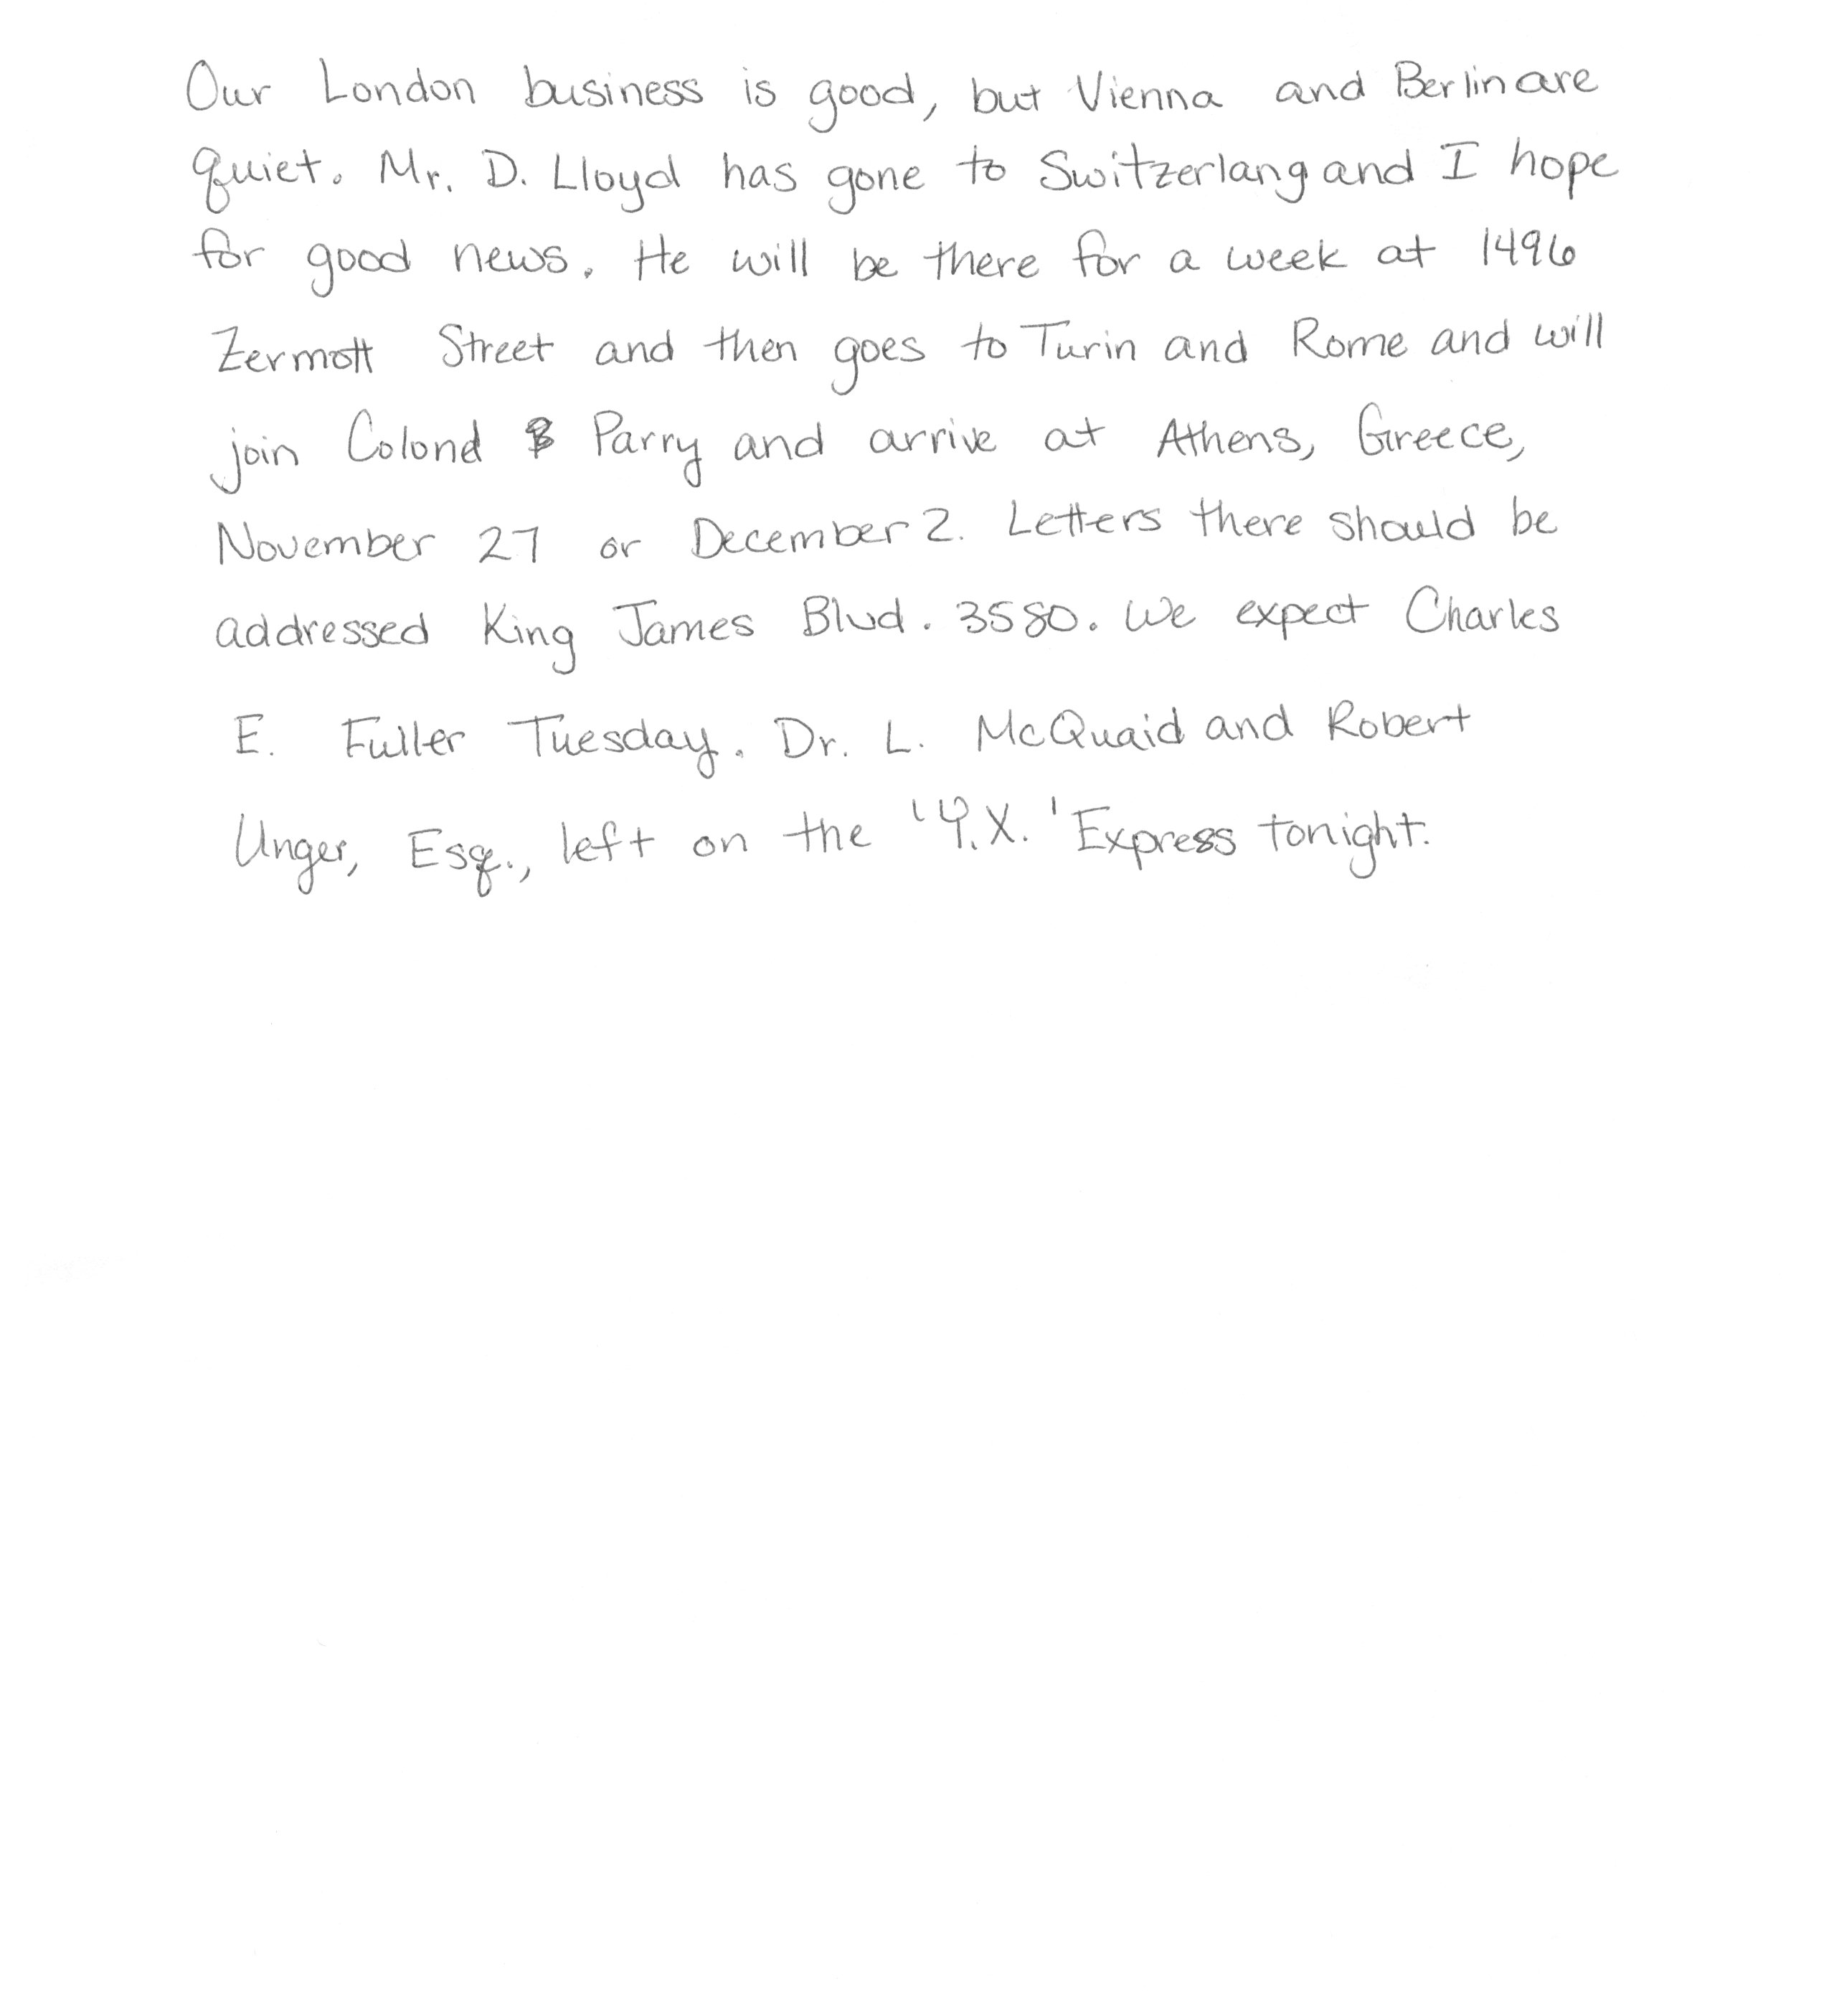 Our London business is good, but Vienna and Berlin are
quiet. Mr. D. Lloyd has gone to Switzerlang and I hope
for good news. He will be there for a week at 1496
Zermott Street and then goes to Turin and Rome and will
join Colond Parry and arrive at Athens, Greece,
November 27 or December 2. Letters there should be
addressed King James Blvd. 3580. We expect Charles
E. Fuller Tuesday. Dr. L. McQuaid and Robert
Unger, Esq., left on the 'Y.X.' Express tonight.